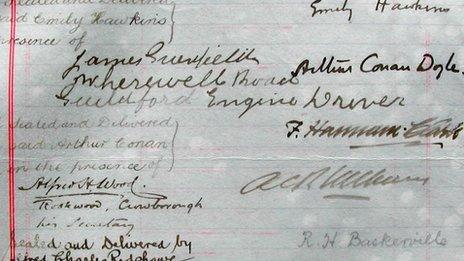 Sealed and Delivered
said Emily Hawkins
presence of
Emily Hawkins
James Greenfield
Wherewell Road
Guildford Engine Driver
Arthur Conan Doyle
Sealed and Delivered
said Arthur Conan
in the presence of
Alfred H Wood.
Crowborough
his Secretary
Sealed and Delivered by
R. H. Baskerville